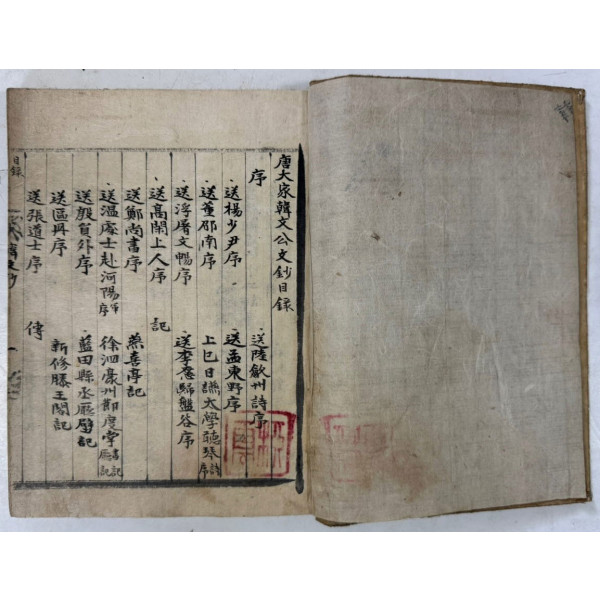 唐大家韓文公文鈔目錄
序
送陸歙州詩序
送楊少尹序
送孟東野序
送董邵南序
上巳日讌太學聽琴詩序
送浮屠文暢序
送李愿歸盤谷序
送高閑上人序
記
送鄭尚書序
燕喜亭記
送溫處士赴河陽軍序
徐泗豪州節度掌書記廳記
送殷員外序
藍田縣丞廳壁記
送區冊序
新修滕王閣記
送張道士序
傳
目錄